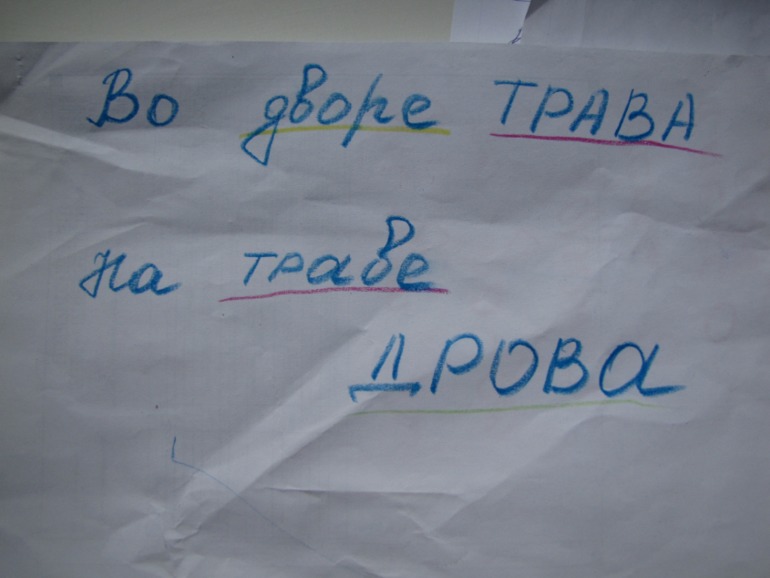 Во дворе ТРАВА
На траве
ДРОВА